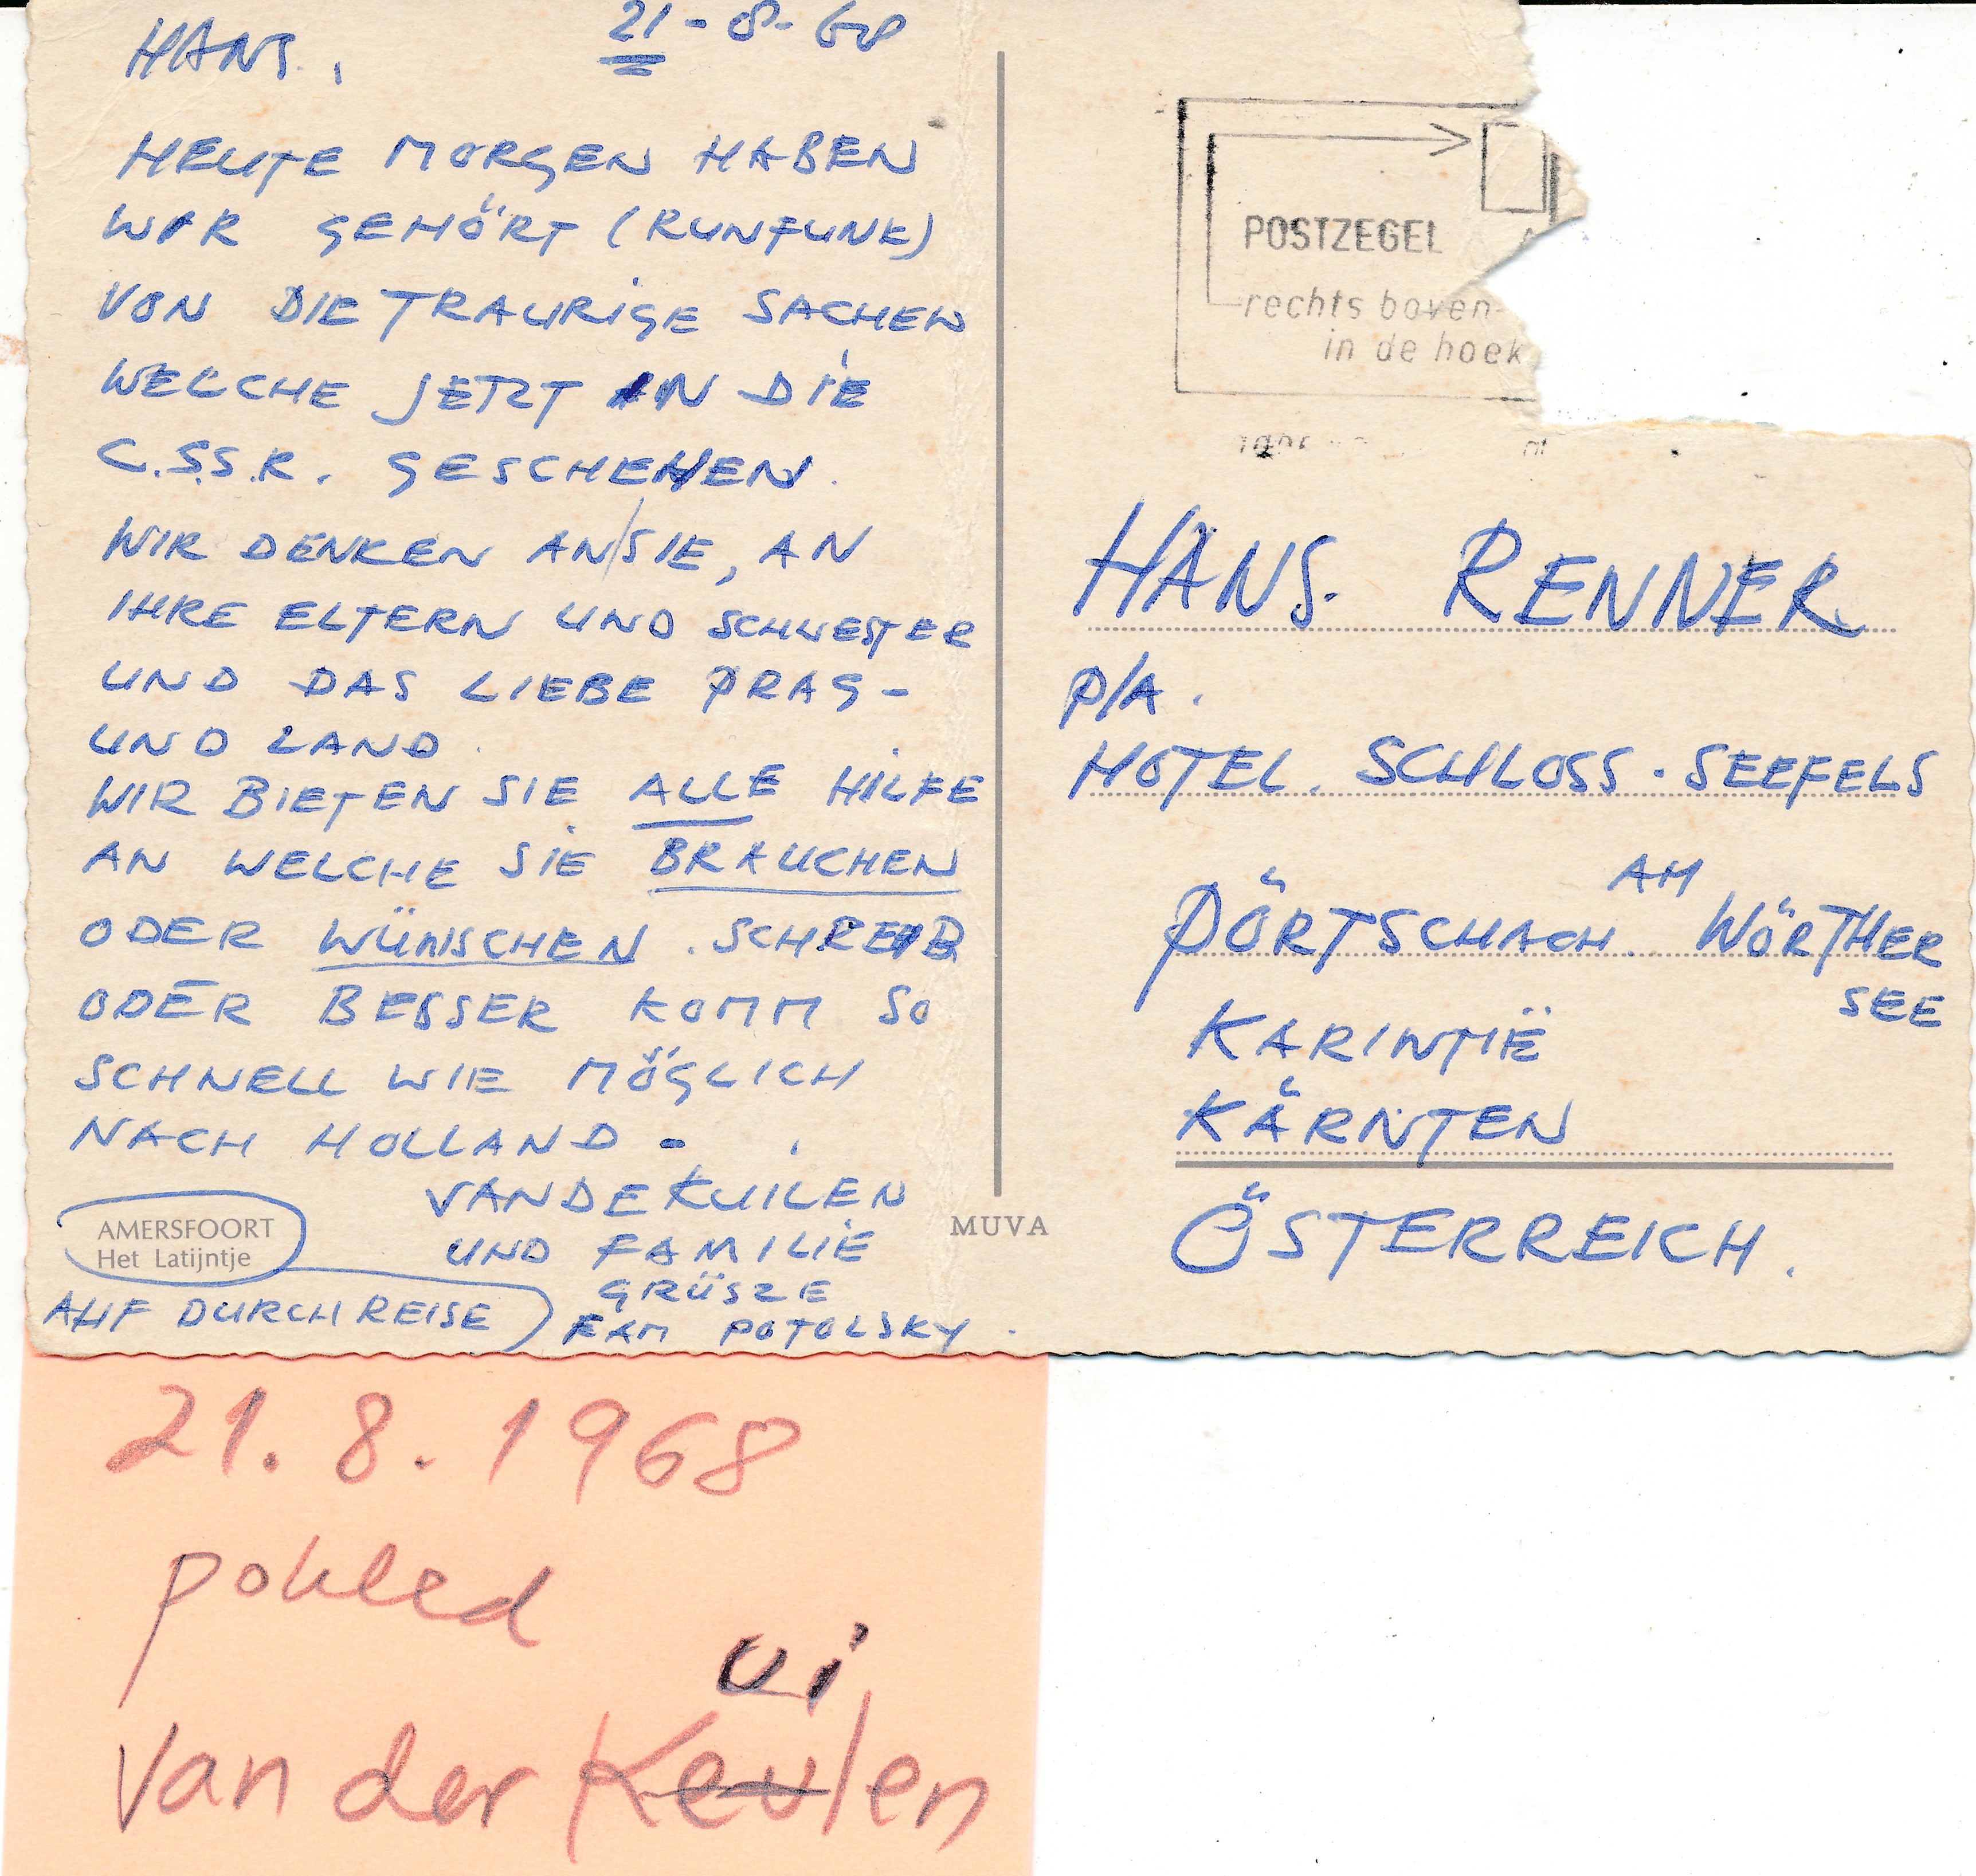 21-8-68
HANS.,
HEUTE MORGEN HABEN
WIR GEHÖRT (RUNFUNK)
VON DIE TRAURIGE SACHEN
WELCHE JETZT IN DIE
C.S.S.R. GESCHEHEN.
WIR DENKEN AN/SIE, AN
IHRE ELTERN UND SCHWESTER
UND DAS LIEBE PRAG-
UND LAND.
WIR BIETEN SIE ALLE HILFE
AN WELCHE SIE BRAUCHEN
ODER WÜNSCHEN. SCHREIB
ODER BESSER KOMM SO
SCHNELL WIE MÖGLICH
NACH HOLLAND -
VANDEKUILEN
UND FAMILIE
GRÜSZE
FAM POTOLSKY.
AMERSFOORT
Het Latijntje
AUF DURCHREISE
MUVA
POSTZEGEL
rechts boven
in de hoek
HANS. RENNER
P/A.
HOTEL. SCHLOSS. SEEFELS
PÖRTSCHACH. AM WÖRTHER
SEE
KARINTIË
KÄRNTEN
ÖSTERREICH.
21.8.1968
pohled
ui
Van der Keulen